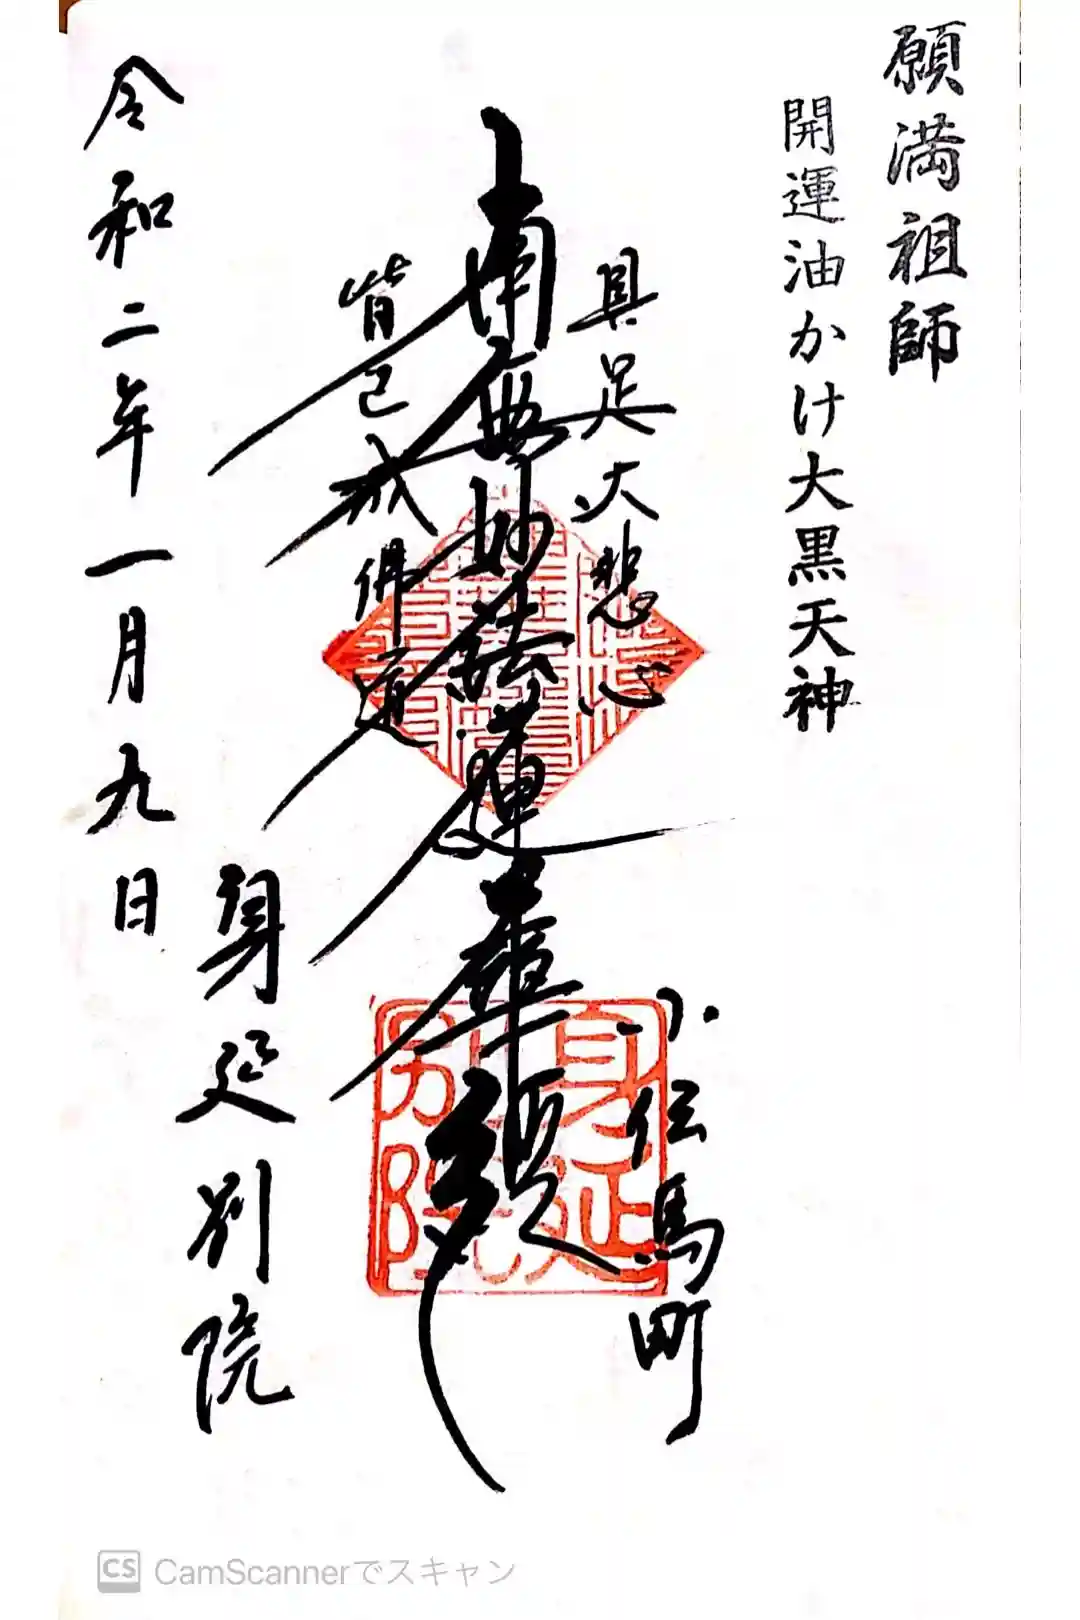 願満祖師
開運油かけ大黒天神
具足大悲心
南無妙法蓮華経
皆已成佛道
小伝馬町
身延別院
令和二年一月九日
身延
別院
CS CamScannerでスキャン